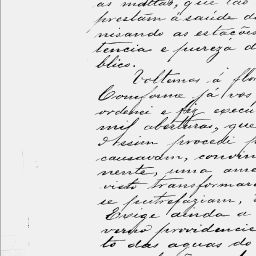 as mattas, que tão
prestam á saúde d
nisando as estações
tencia e pureza d
blico.
Voltemos á flo
Conforme já vos
ordenei e fiz execu
mil aberturas, que
Assim procedi p
causavam, conven
nente, uma ame
visto transformar
se putrefaziam,
Exige ainda a
verno providencie
to das aguas do